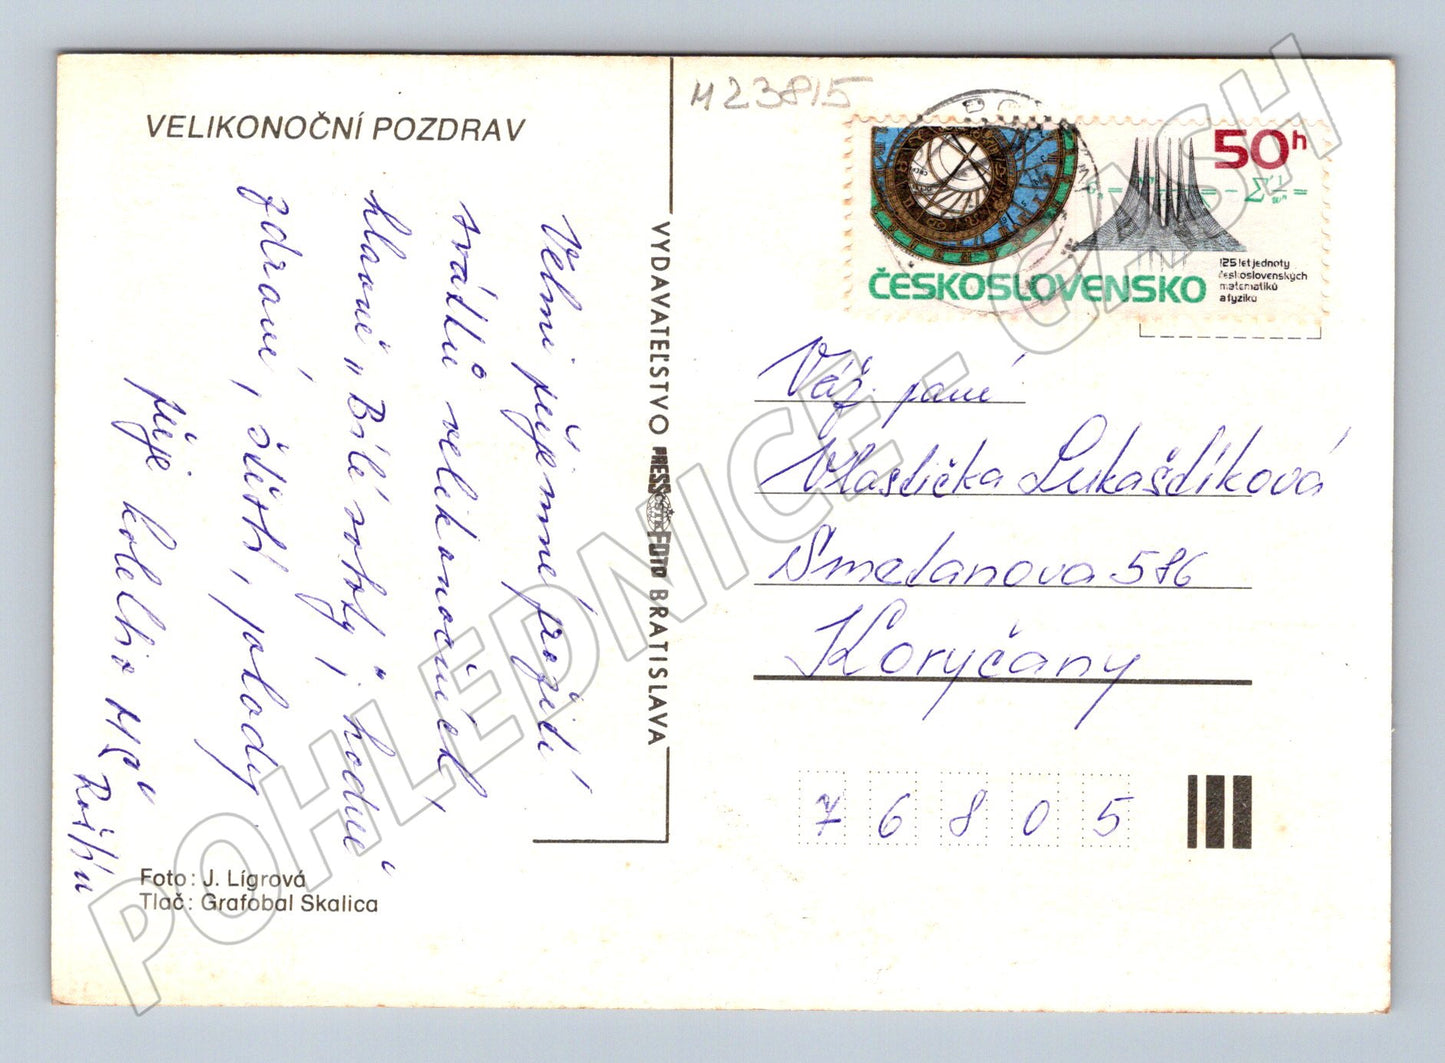 M23815
VELIKONOČNÍ POZDRAV
Velmi příjemné prožití
svátků velikonočních,
hlavně „Bílé soboty", hodně
zdraví, štěstí, pohody
přeje
VYDAVATEĽSTVO PRESSFOTO BRATISLAVA
ČSTK
50h
ČESKOSLOVENSKO
125 let jednoty
československých
matematiků
a fyziků
Váž. paní
Vlastička Lukaštíková
Smetanova 586
Koryčany
76805
Foto: J. Lígrová
Tlač: Grafobal Skalica
POHLEDNICE - CASH